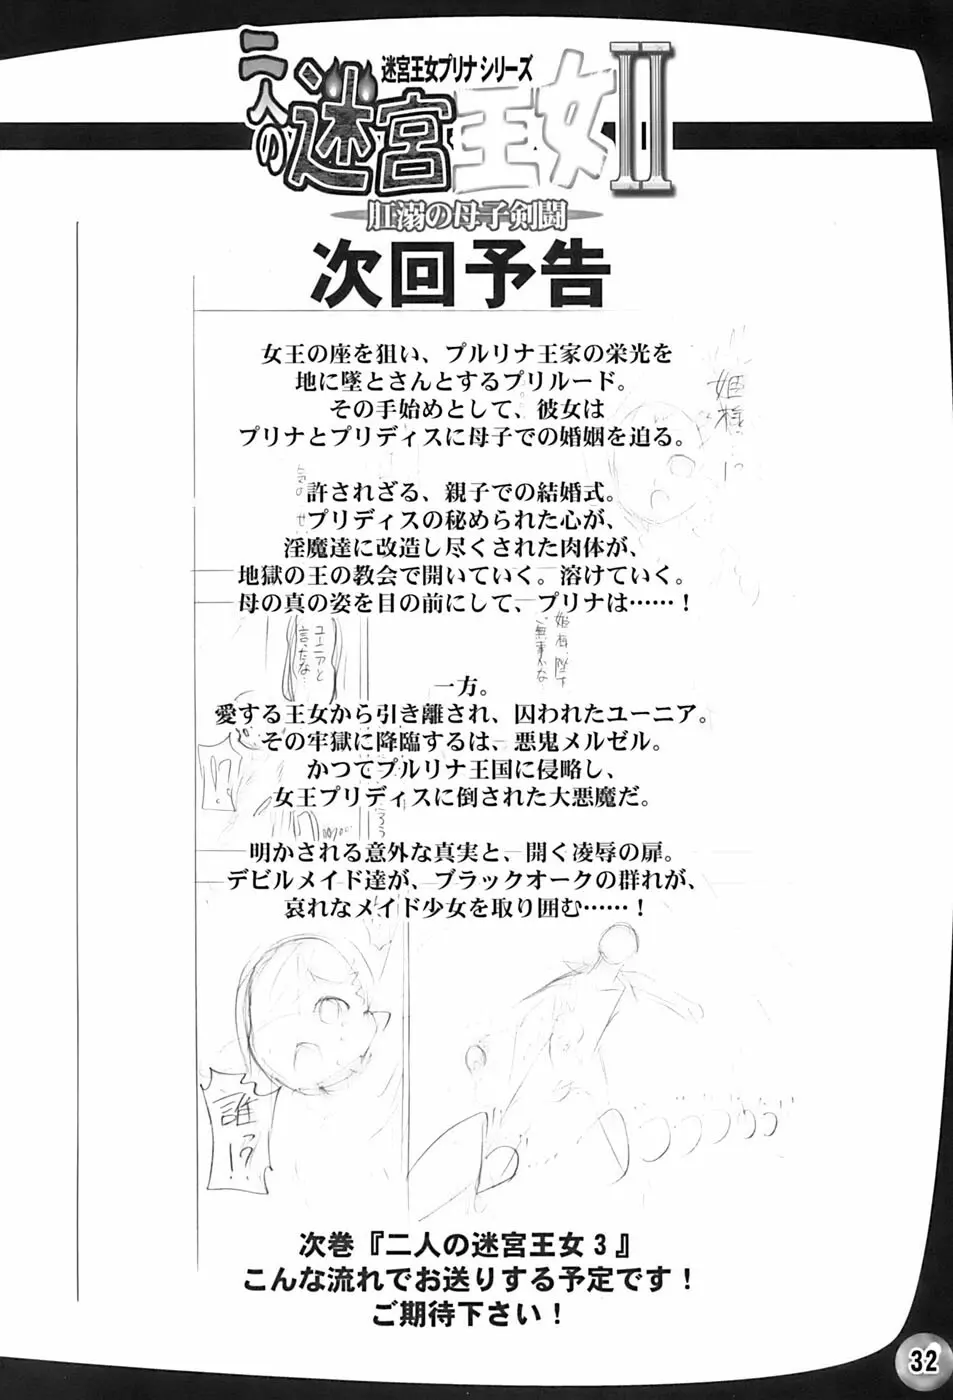 迷宮王女プリナシリーズ
二人の迷宮王女Ⅱ
肛溺の母子剣闘
次回予告
女王の座を狙い、プルリナ王家の栄光を
地に墜とさんとするプリルード。
その手始めとして、彼女は
プリナとプリディスに母子での婚姻を迫る。
許されざる、親子での結婚式。
プリディスの秘められた心が、
淫魔達に改造し尽くされた肉体が、
地獄の王の教会で開いていく。溶けていく。
母の真の姿を目の前にして、プリナは……！
一方。
愛する王女から引き離され、囚われたユーニア。
その牢獄に降臨するは、悪鬼メルゼル。
かつてプルリナ王国に侵略し、
女王プリディスに倒された大悪魔だ。
明かされる意外な真実と、開く凌辱の扉。
デビルメイド達が、ブラックオークの群れが、
哀れなメイド少女を取り囲む……！
姫様…!?
姫様、陛下
ご無事かな…
ユーニアと
言ったな…
!?
誰!?
次巻『二人の迷宮王女３』
こんな流れでお送りする予定です！
ご期待下さい！
32